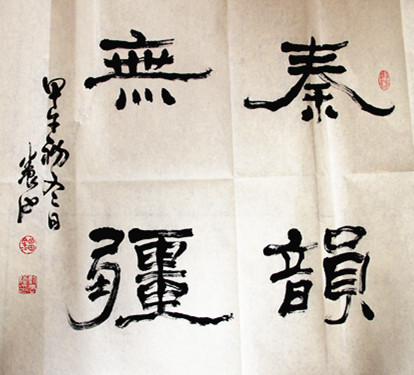 秦韻
無疆
甲午初冬日